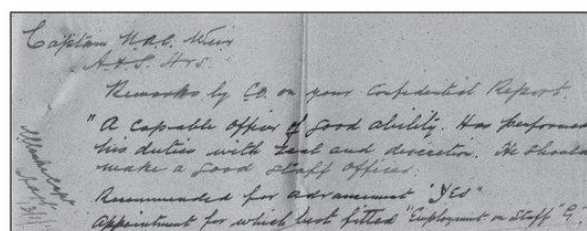 Captain N.A.C. Weir
A & S. Hrs.
Remarks by C.O. on your Confidential Report.
"A capable officer of good ability. Has performed
his duties with zeal and discretion. He should
make a good Staff Officer.
Recommended for advancement "Yes"
Appointment for which best fitted "Employment on Staff "G"